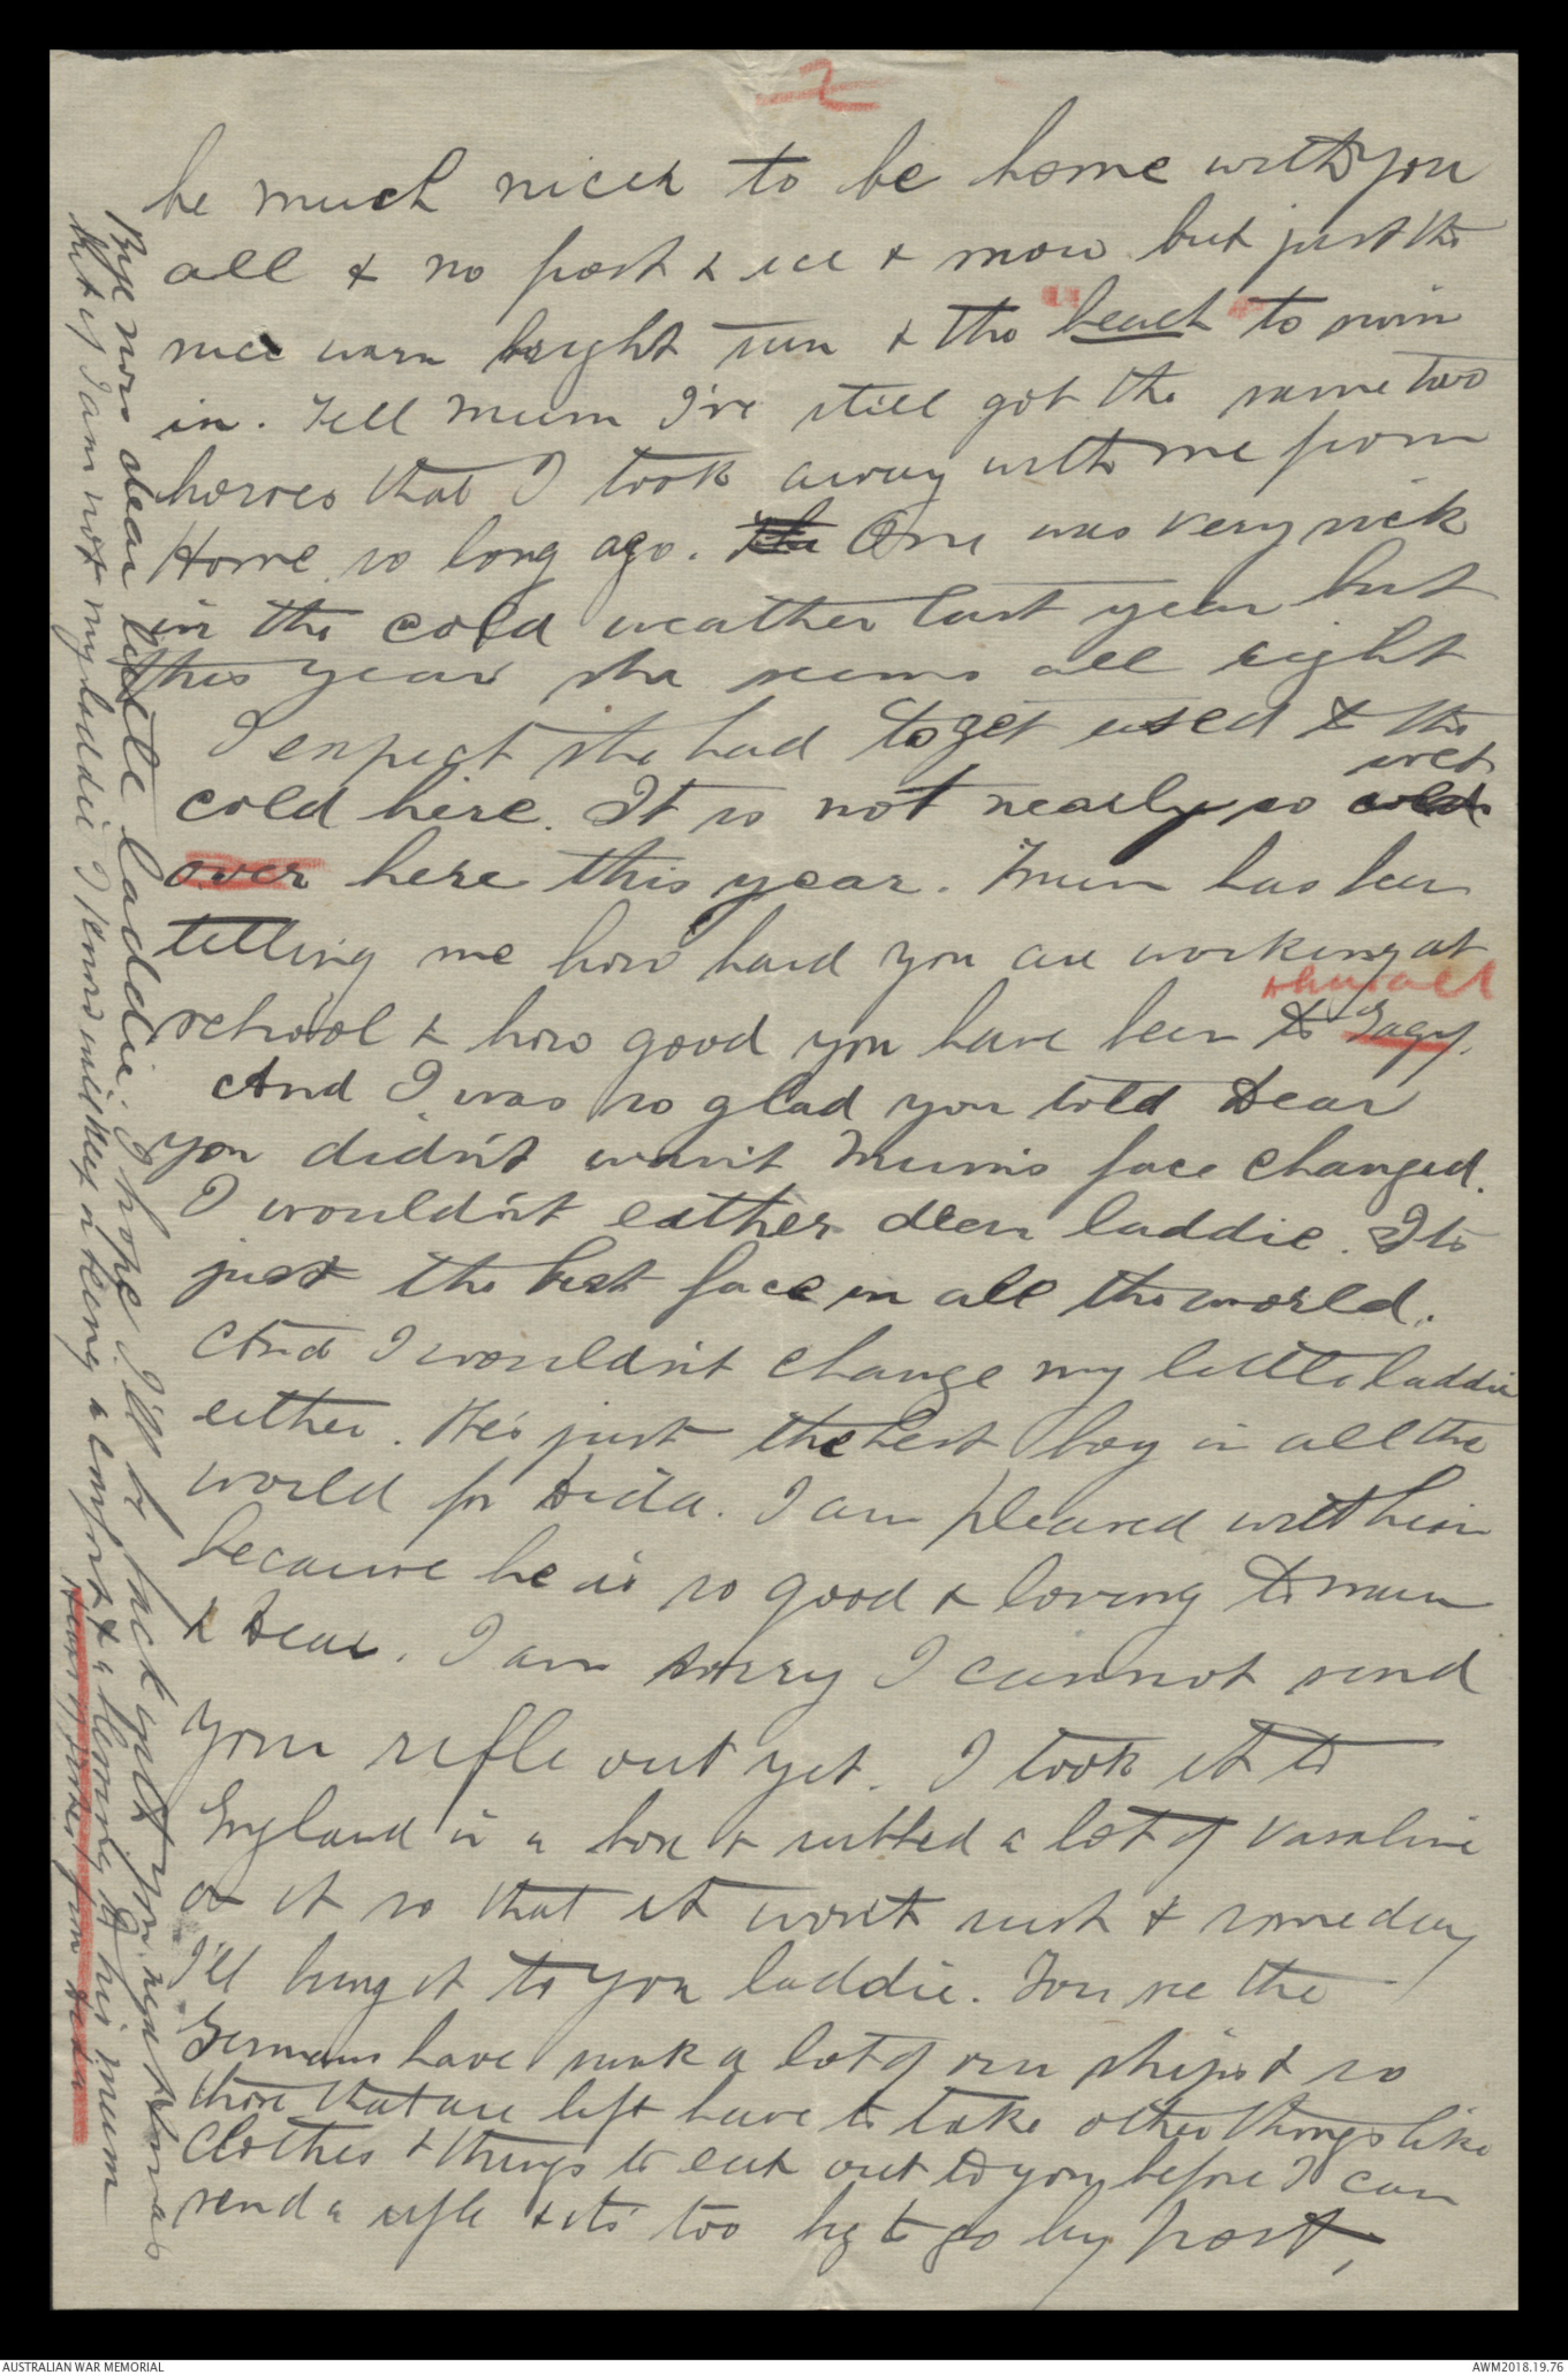 2
be much nicer to be home with you
all & no frost & ice & snow but just the
nice warm bright sun & the "beach" to swim
in. Tell Mum I've still got the same two
horses that I took away with me from
Home so long ago. The One was very sick
in the cold weather last year but
this year she seems all right
I expect she had to get used to the
cold here. It is not nearly so cold wet
over here this year. Mum has been
telling me how hard you are working at
school & how good you have been to
And I was so glad you told Dear
you didn't want Mum's face changed.
I wouldn't eather dear laddie. Its
just the best face in all the world.
And I wouldn't change my little laddie
either. He's just the best boy in all the
world for Dida. I am pleased with him
because he is so good & loving to mum
& Dear. I am sorry I cannot send
your rifle out yet. I took it to
England in a box & rubbed a lot of vasaline
on it so that it won't rust & some day
I'll bring it to you laddie. You see the
Germans have sunk a lot of our ships & so
those that are left have to take other things like
clothes & things to eat out to you before I can
send a rifle & its too big to go by post,
Bye now dear little laddie. I hope I'll be back with you next Xmas
but if I am not my laddie I know will keep on being a comfort & a blessing to his mum
from Dida
AUSTRALIAN WAR MEMORIAL
AWM2018.19.76